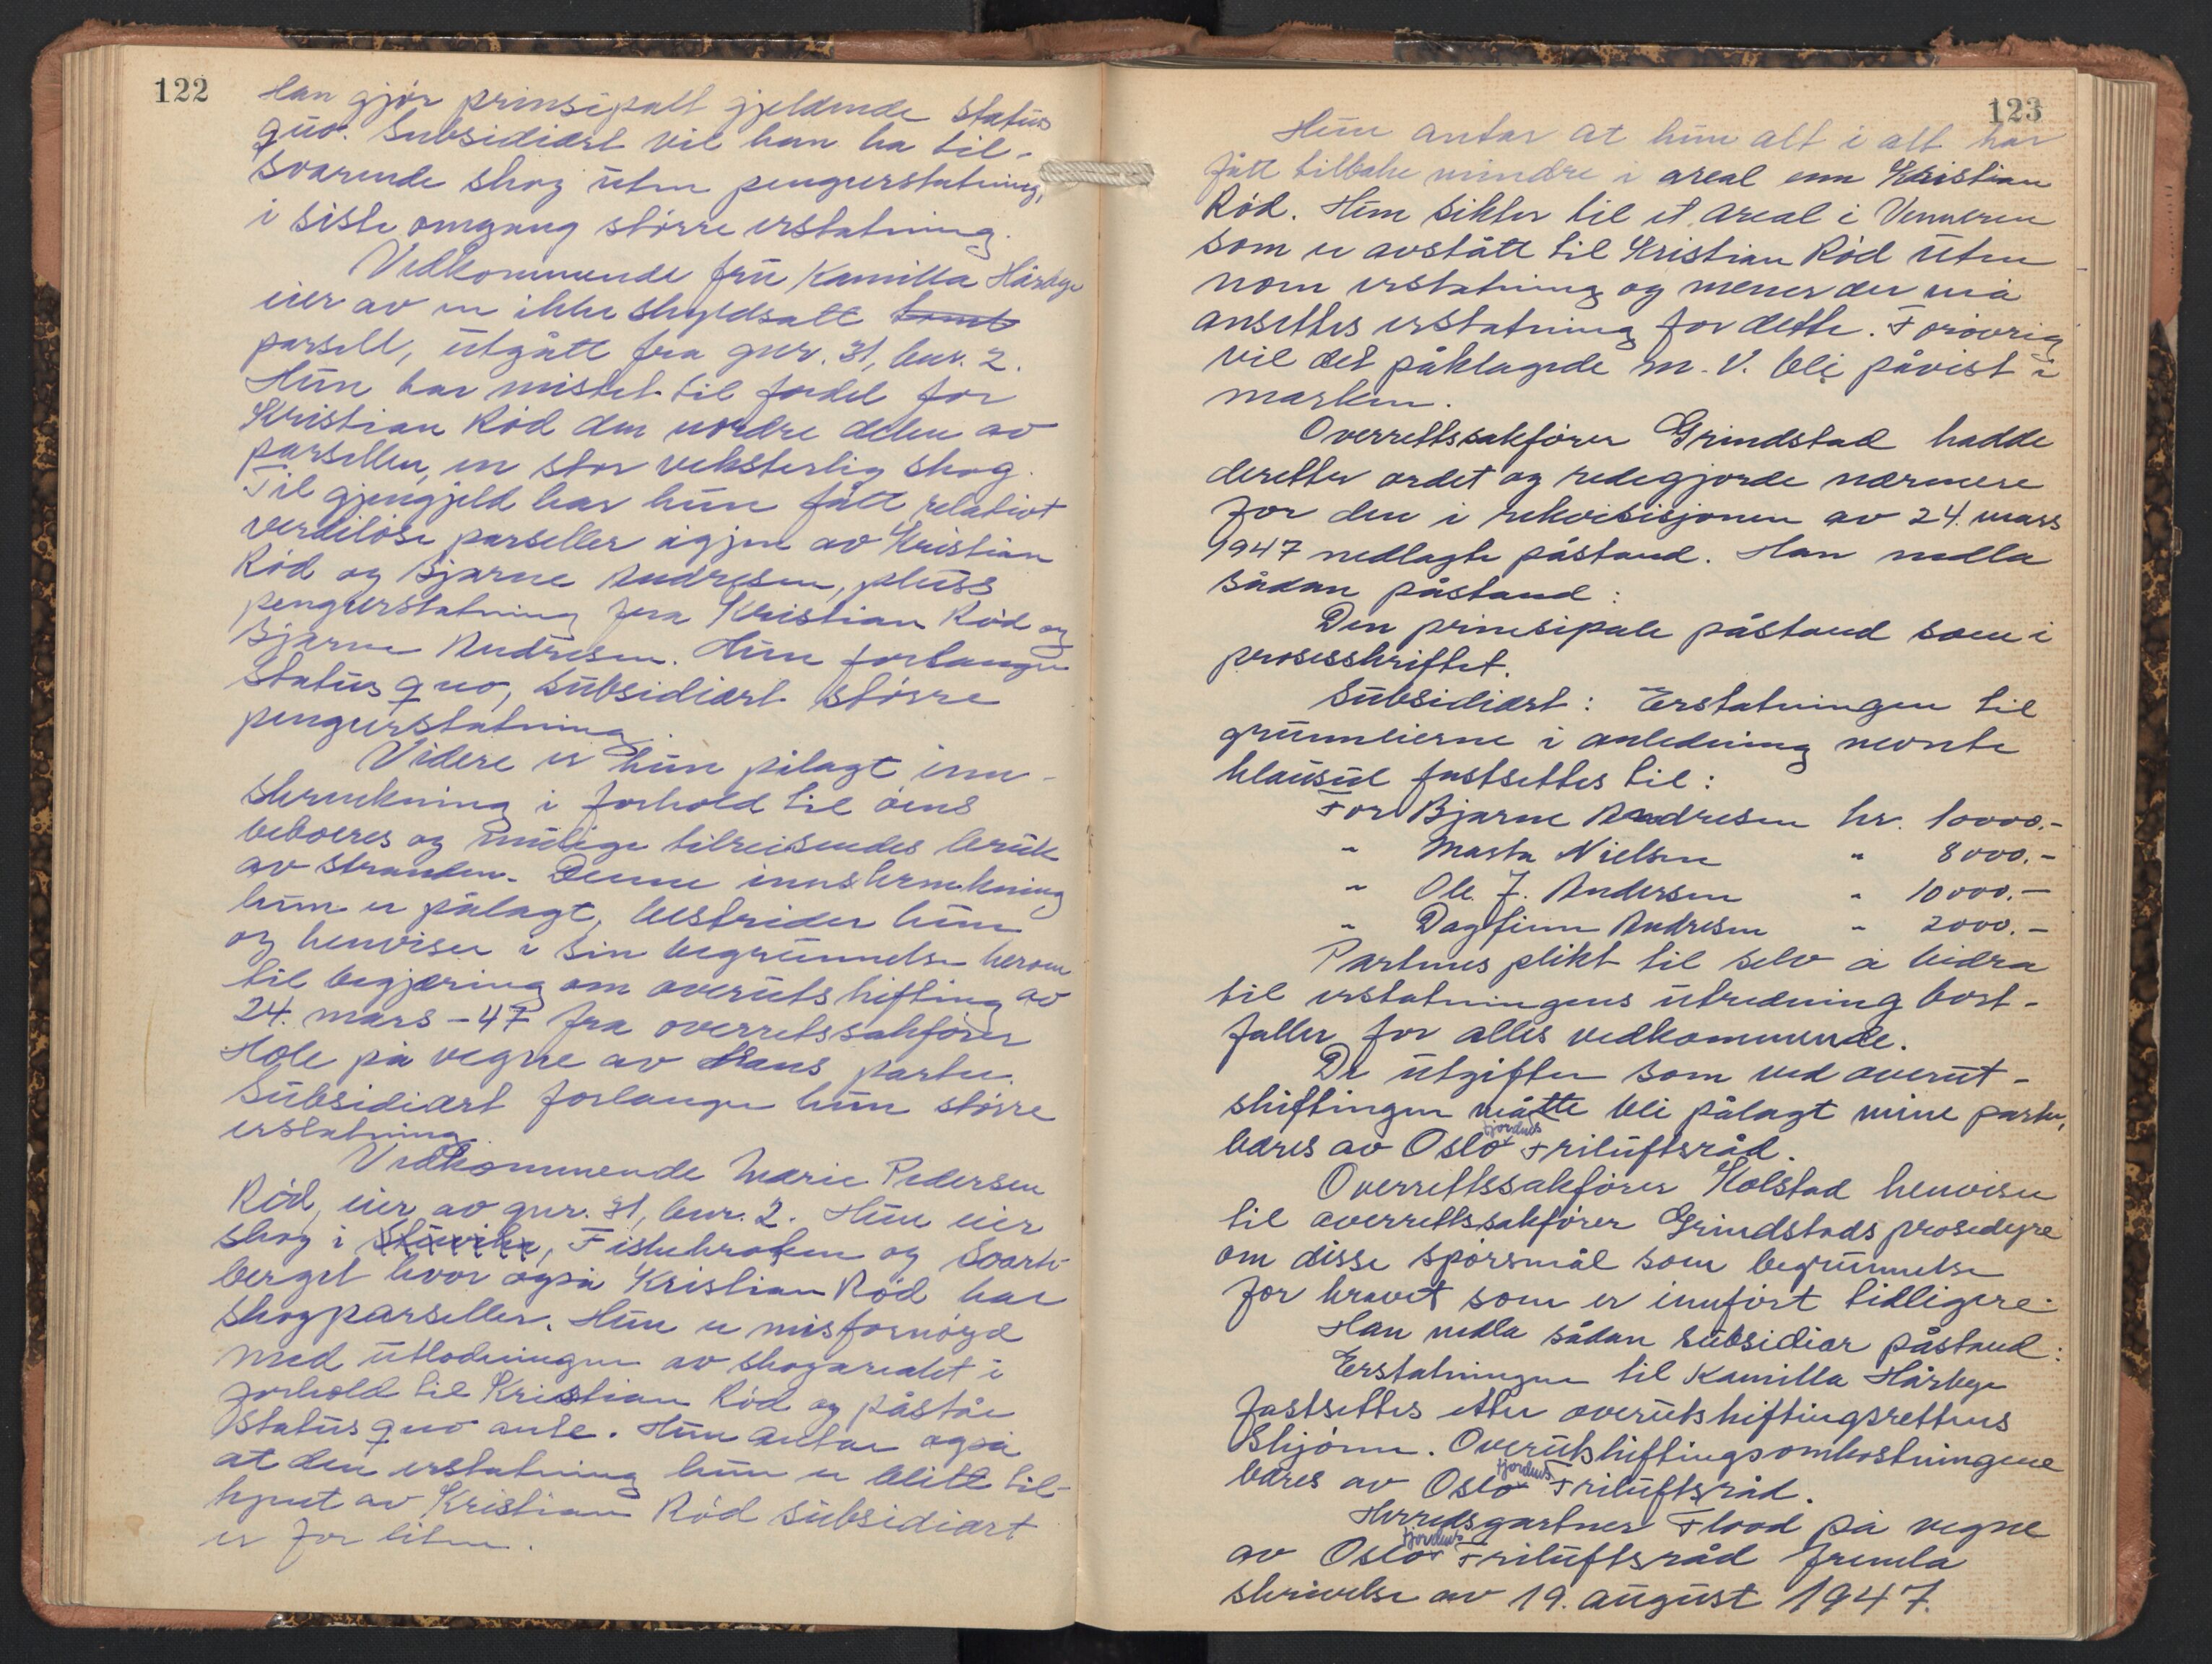 122
Han gjør prinsipalt gjeldende status
quo. Subsidiært vil han ha til-
svarende skog uten pengeerstatning,
i siste omgang større erstatning.
Vedkommende fru Kamilla Hårbye
eier av en ikke skyldsatt tomt
parsell, utgått fra gnr. 31, bnr. 2.
Hun har mistet til fordel for
Kristian Rød den nordre delen av
parsellen, en stor veksterlig skog.
Til gjengjeld har hun fått relativt
verdiløse parseller igjen av Kristian
Rød og Bjarne Andresen, pluss
pengeerstatning fra Kristian Rød og
Bjarne Andresen. Hun forlanger
status quo, subsidiært større
pengeerstatning.
Videre er hun pålagt inn-
skrenkning i forhold til øens
beboeres og mulige tilreisendes bruk
av stranden. Denne innskrenkning
hun er pålagt, bestrider hun
og henviser i sin begrunnelse herom
til begjæring om overutskifting av
24. mars -47 fra overrettssakfører
Hole på vegne av Hans parter.
Subsidiært forlanger hun større
erstatning.
Vedkommende Marie Pedersen
Rød, eier av gnr. 31, bnr. 2. Hun eier
skog i Fiskekroken og Svart-
berget hvor også Kristian Rød har
skogparseller. Hun er misfornøyd
med utlodningen av skogarealet i
forhold til Kristian Rød og påstår
status quo ante. Hun antar også
at den erstatning hun er blitt til-
kjent av Kristian Rød subsidiært
er for liten.
123
Hun antar at hun alt i alt har
fått tilbake mindre i areal enn Kristian
Rød. Hun sikter til et areal i Venneren
som er avstått til Kristian Rød uten
noen erstatning og mener der må
ansettes erstatning for dette. Forøvrig
vil det påklagede m. V. bli påvist i
marken.
Overrettssakfører Grindstad hadde
deretter ordet og redegjorde nærmere
for den i rekvisisjonen av 24. mars
1947 nedlagte påstand. Han nedla
sådan påstand:
Den prinsipale påstand som i
prosesskriftet.
Subsidiært: Erstatningen til
grunneierne i anledning nevnte
klausul fastsettes til:
For Bjarne Andresen kr. 10000.-
" Marta Nielsen " 8000.-
" Ole J. Andersen " 10000.-
" Dagfinn Andresen " 2000.-
Partenes plikt til selv å bidra
til erstatningens utredning bort-
faller for alles vedkommende.
De utgifter som ved overut-
skiftingen måtte bli pålagt mine parter,
bæres av Oslofjordens Friluftsråd.
Overrettssakfører Kolstad henviser
til overrettssakfører Grindstads prosedyre
om disse spørsmål som begrunnelse
for kravet som er innført tidligere.
Han nedla sådan subsidiær påstand:
Erstatningen til Kamilla Hårbye
fastsettes etter overutskiftingsrettens
skjønn. Overutskiftingsomkostningene
bæres av Oslofjordens Friluftsråd.
Herredsgartner Flood på vegne
av Oslofjordens Friluftsråd fremla
skrivelse av 19. august 1947.